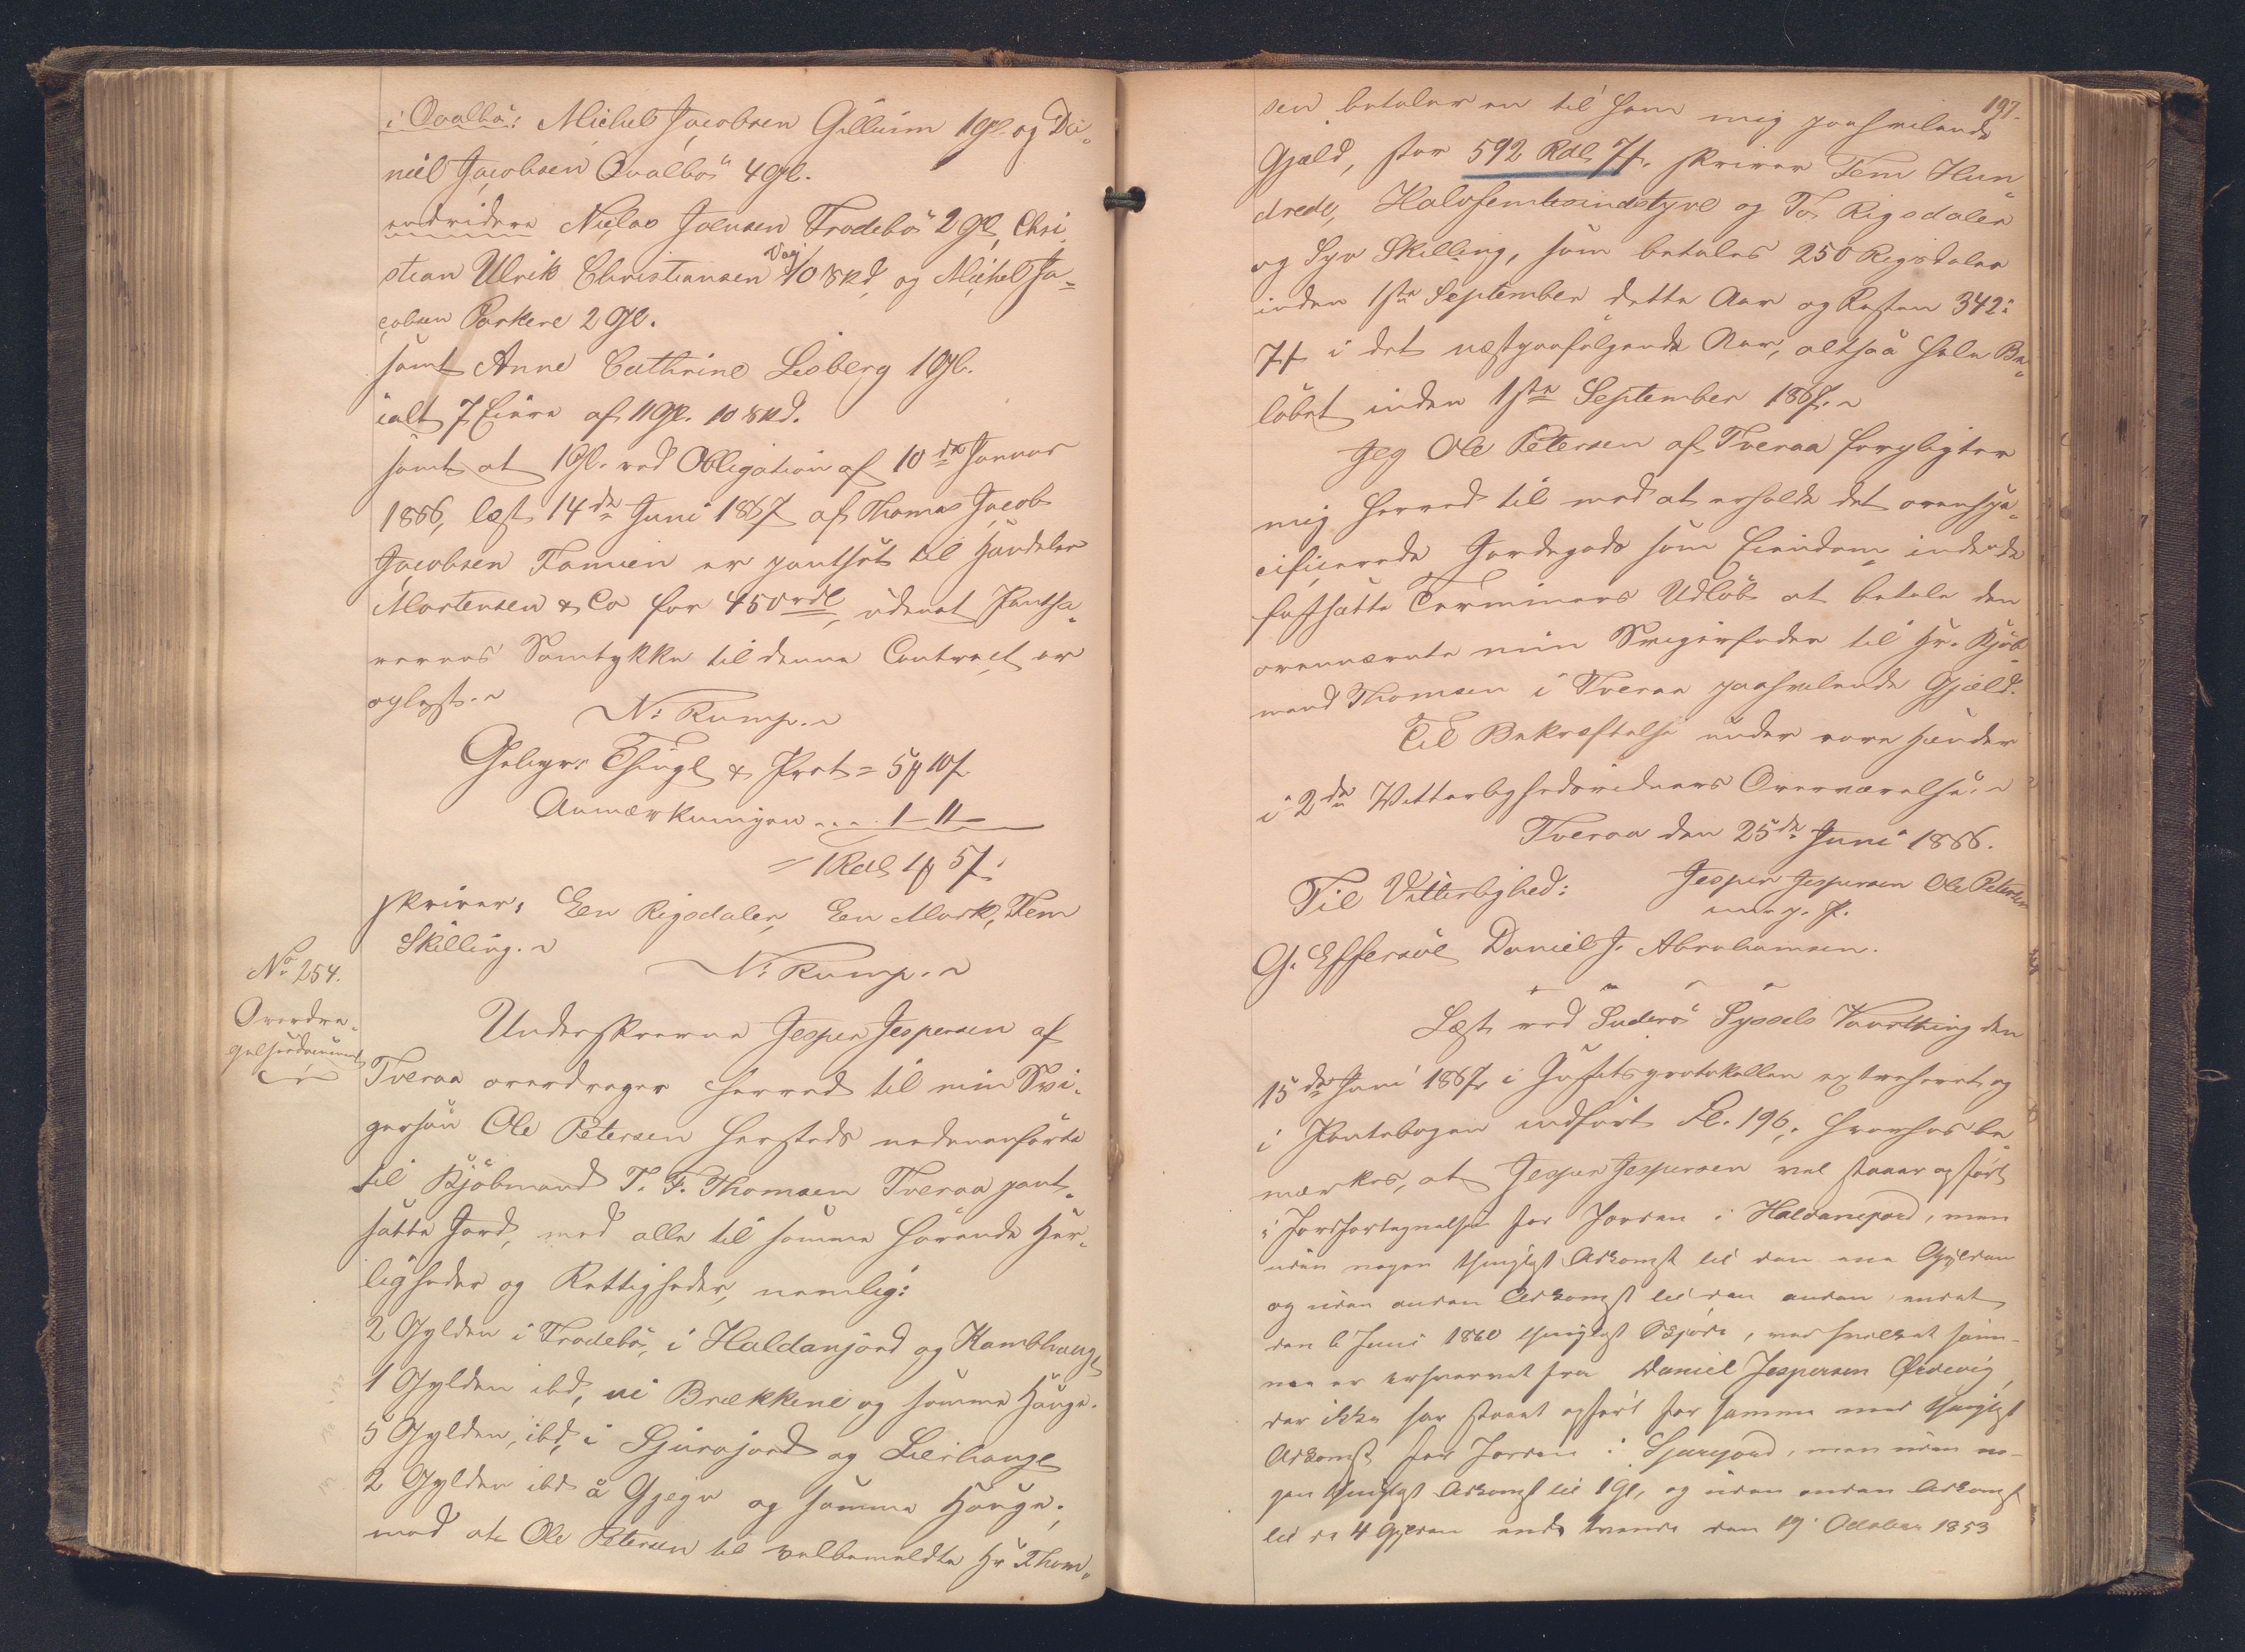 i Qvalbö: Michel Jacobsen Gilliim 1 Gl. og Da„
niel Jacobsen Qvalbö 4 Gl.
endvidere Niclas Joensen Frodebö 2 Gl, Chri
stian Ulrik Christiansen Vaij 10 Skd, og Michel Ja=
cobsen Porkere 2 Gl.
samt Anne Cathrine Lisberg 1 Gl.
ialt 7 Eiere af 11 Gl. 10 Skd.
samt at 1 Gl. ved Obligation af 10de Januar
1866, læst 14de Juni 1867 af Thomas Jacob
Jacobsen Famien er pantsat til Handeler
Mortensen & Co for 450 rdl, uden at Pantha„
verens Samtykke til denne Contract er
oplyst.
N: Rump.
Gebyr: Thingl & Prot = 5 ₰ 10 s
Anmærkningen ... 1 - 11 -
= 1 Rdl 1 ₰ 5 s
skriver: Een Rigsdaler, Een Mark, Fem
Skilling.
N: Rump.
No 254.
Overdra„
gelsesdocument
Underskrevne Jesper Jespersen af
Tveraa overdrager herved til min Svi„
gersön Ole Petersen hersteds nedenanförte
til Kjöbmand T. F. Thomsen Tveraa pant„
satte Jord, med alle til samme hörende Her„
ligheder og Rettigheder, nemlig:
2 Gylden i Frodebö, i Haldanjord og Kambhauge
1 Gylden ibd, ui Brækkene og samme Hauge.
5 Gylden, ibd, i Sjurajord og Lierhauge
2 Gylden ibd å Gjegv og samme Hauge;
mod at Ole Petersen til velbemeldte Hr Thom„
197.
sen betaler en til ham mig paahvilende
Gjæld, stor 592 Rdl 7 s. skriver Fem Hun„
drede, Halvfemtesindstyve og To Rigsdaler
og Syv Skilling, som betales 250 Rigsdaler
inden 1ste September dette Aar og Resten 342:
7 s i det næstpaafølgende Aar, altsaa hele Be„
löbet inden 1ste September 1867.
Jeg Ole Petersen af Tveraa forpligter
mig herved til mod at erholde det ovenspe„
cificerede Jordegods som Eiendom inden de
fastsatte Terminers Udløb at betale den
ovennævnte min Svigerfader til Hr. Kjöb„
mand Thomsen i Tveraa paahvilende Gjæld.
Til Bekræftelse under vore Hænder
i 2de Vitterlighedsvidners Overværelse.
Tveraa den 25de Juni 1866.
Til Vitterlighed: Jesper Jespersen Ole Petersen
m. p. P.
G. Effersöe Daniel J. Abrahamsen.
Læst ved Suderö Syssels Vaarthing den
15de Juni 1867, i Justitsprotokollen extraheret og
i Pantebogen indfört Fl. 196, hvorhos be„
mærkes, at Jesper Jespersen vel staaer opfört
i Jordfortegnelsen for Jorden i Haldanejord, men
uden nogen thinglyst Adkomst til den ene Gylden
og uden anden Adkomst til den anden end at
den 6 Juni 1860 thinglyst Skjöde, ved hvilket sam-
me er erhvervet fra Daniel Jespersen Ördevig,
der ikke har staaet opfört for samme med thinglyst
Adkomst, for Jorden i Sjurejord, men uden no-
gen thinglyst Adkomst til 1 Gl, og uden anden Adkomst
til de 4 Gylden end tvende den 19 October 1853